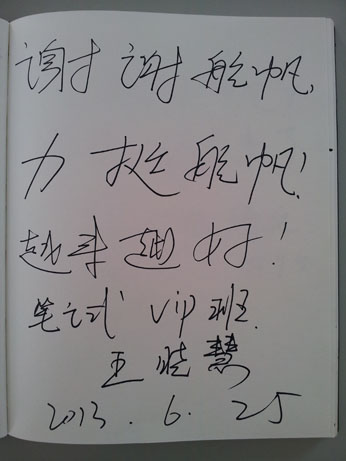 谢谢航帆,
力挺航帆!
越来越好!
笔试 VIP 班.
王晓慧
2013.6.25